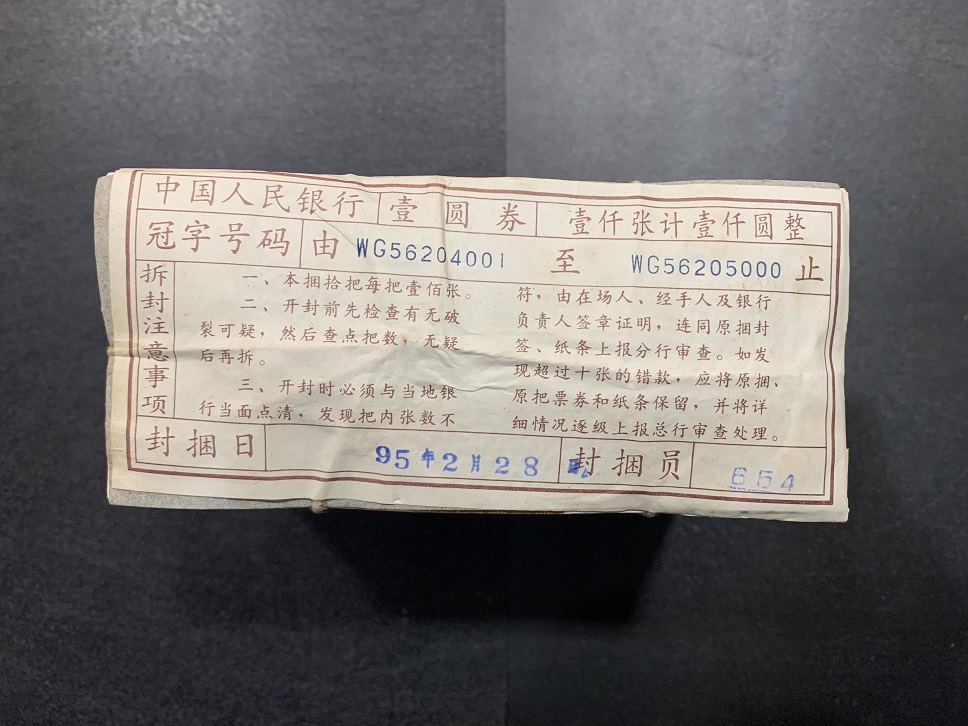 中国人民银行 壹圆券 壹仟张计壹仟圆整
冠字号码 由 WG56204001 至 WG56205000 止
拆封注意事项
一、本捆拾把每把壹佰张。
二、开封前先检查有无破
裂可疑，然后查点把数，无疑
后再拆。
三、开封时必须与当地银
行当面点清，发现把内张数不
符，由在场人、经手人及银行
负责人签章证明，连同原捆封
签、纸条上报分行审查。如发
现超过十张的错款，应将原捆、
原把票券和纸条保留，并将详
细情况逐级上报总行审查处理。
封捆日 95年2月28 封捆员 654